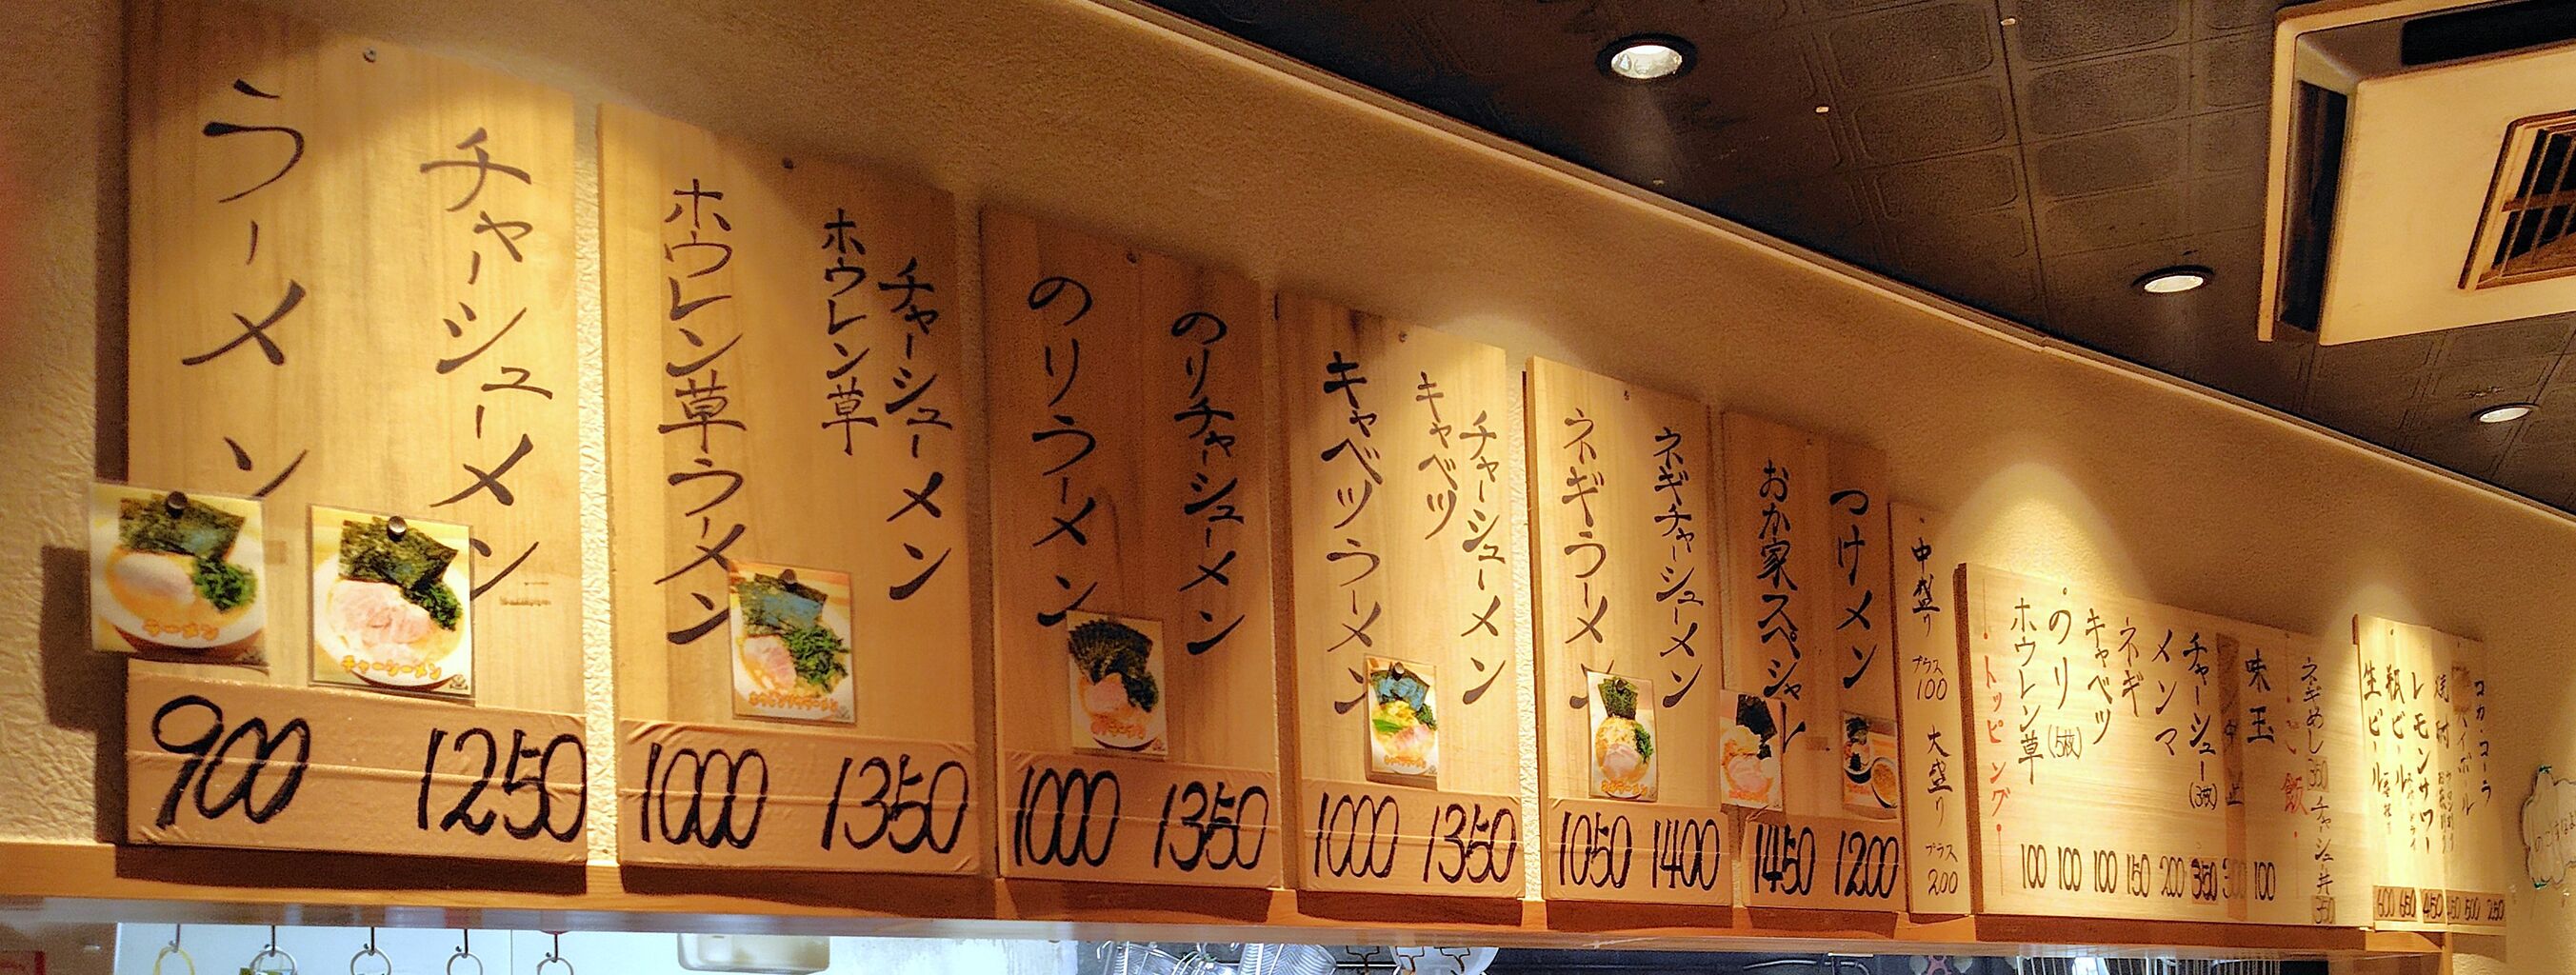 ラーメン
ラーメン
900
チャーシューメン
チャーシューメン
1250
ホウレン草ラーメン
1000
ホウレン草
チャーシューメン
1350
のりラーメン
1000
のりチャーシューメン
1350
キャベツラーメン
1000
キャベツ
チャーシューメン
1350
ネギラーメン
1050
ネギチャーシューメン
1400
おか家スペシャル
1450
つけメン
1200
中盛り
プラス
100
大盛り
プラス
200
トッピング
ホウレン草
100
のり(5枚)
100
キャベツ
100
ネギ
150
メンマ
200
チャーシュー(3枚)
350
味玉
100
飯
ネギめし
350
チャーシュー丼
350
生ビール
600
瓶ビール
650
レモンサワー
450
コカ・コーラ
250
500